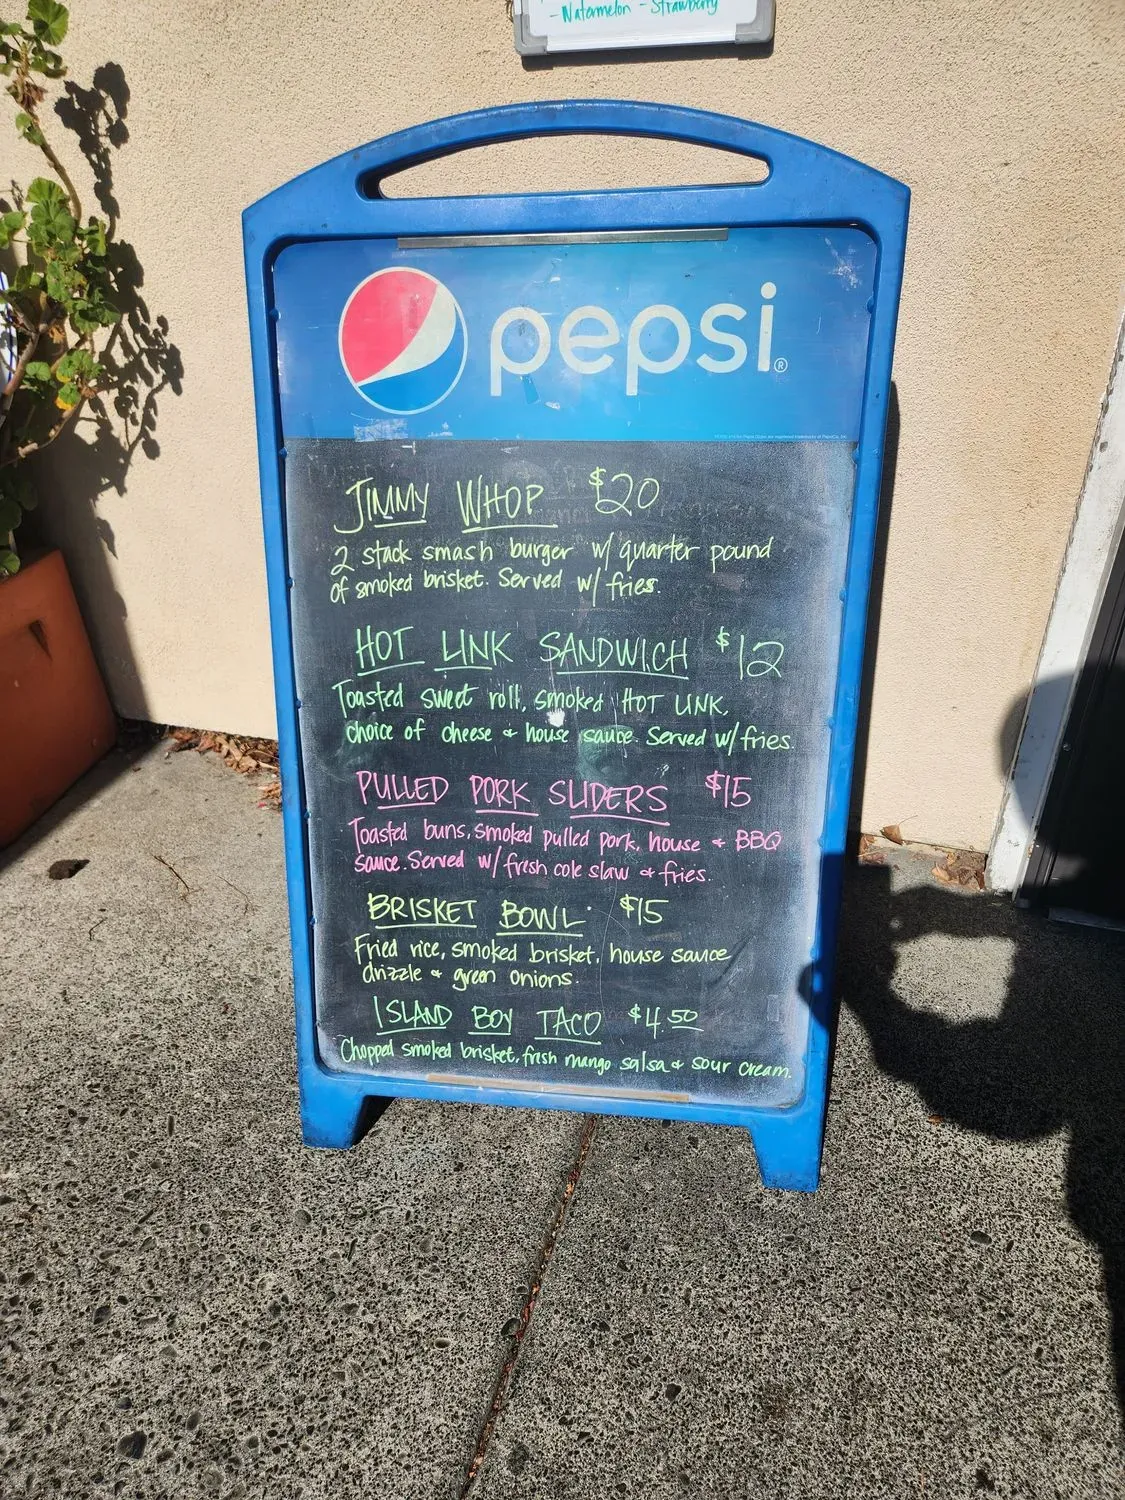 - Watermelon - Strawberry
pepsi®
JIMMY WHOP $20
2 stack smash burger w/ quarter pound
of smoked brisket. Served w/ fries.
HOT LINK SANDWICH $12
Toasted sweet roll, smoked HOT LINK,
choice of cheese + house sauce. Served w/ fries.
PULLED PORK SLIDERS $15
Toasted buns, smoked pulled pork, house + BBQ
sauce. Served w/ fresh cole slaw + fries.
BRISKET BOWL $15
Fried rice, smoked brisket, house sauce
drizzle + green onions.
ISLAND BOY TACO $4.50
Chopped smoked brisket, fresh mango salsa + sour cream.